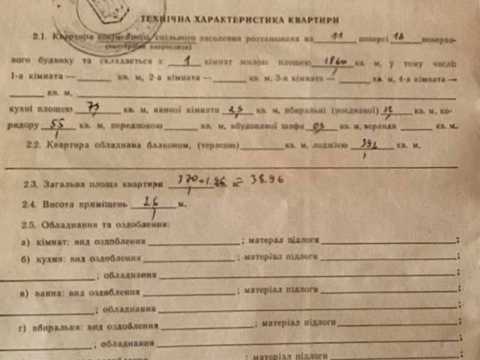 ТЕХНІЧНА ХАРАКТЕРИСТИКА КВАРТИРИ
2.1. Квартира спільного заселення розташована на 11 поверсі 16 поверхо-
вого будинку та складається з 1 кімнат жилою площею кв. м, у тому числі:
1-а кімната — кв. м, 2-а кімната — кв. м, 3-я кімната — кв. м, 4-а кімната —
кв. м,
кухні площею 7,3 кв. м, ванної кімнати кв. м, вбиральні (поєднаної) кв. м, ко-
ридору 5,5 кв. м, передпокою кв. м, вбудованої шафи 0,3 кв. м, веранда кв. м.
2.2. Квартира обладнана балконом, (терасою) кв. м, лоджією кв. м.
2.3. Загальна площа квартири 37,0+1.96 = 38.96
2.4. Висота приміщень 2,6 м.
2.5. Обладнання та оздоблення:
а) кімнат: вид оздоблення ; матеріал підлоги ;
б) кухня: вид оздоблення ; матеріал підлоги
; обладнання ;
в) ванна: вид оздоблення ; матеріал підлоги
; обладнання ;
г) вбиральня: вид оздоблення ; матеріал підлоги
; обладнання ;